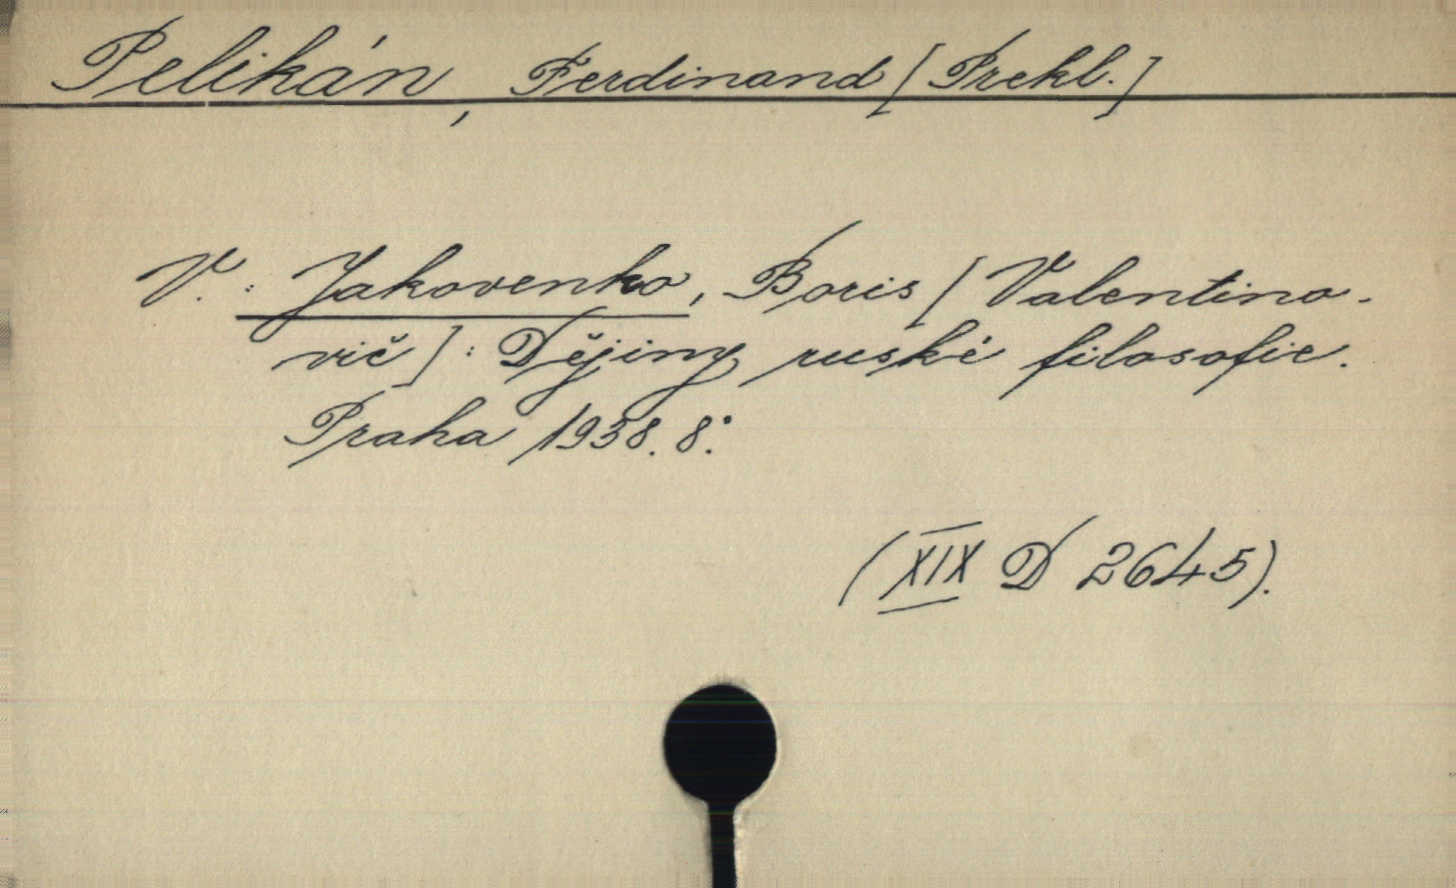 Pelikán, Ferdinand [Prekl.]
V.: Jakovenko, Boris [Valentino-
vič]: Dějiny ruské filosofie.
Praha 1938. 8°.
(XIX D 2645).